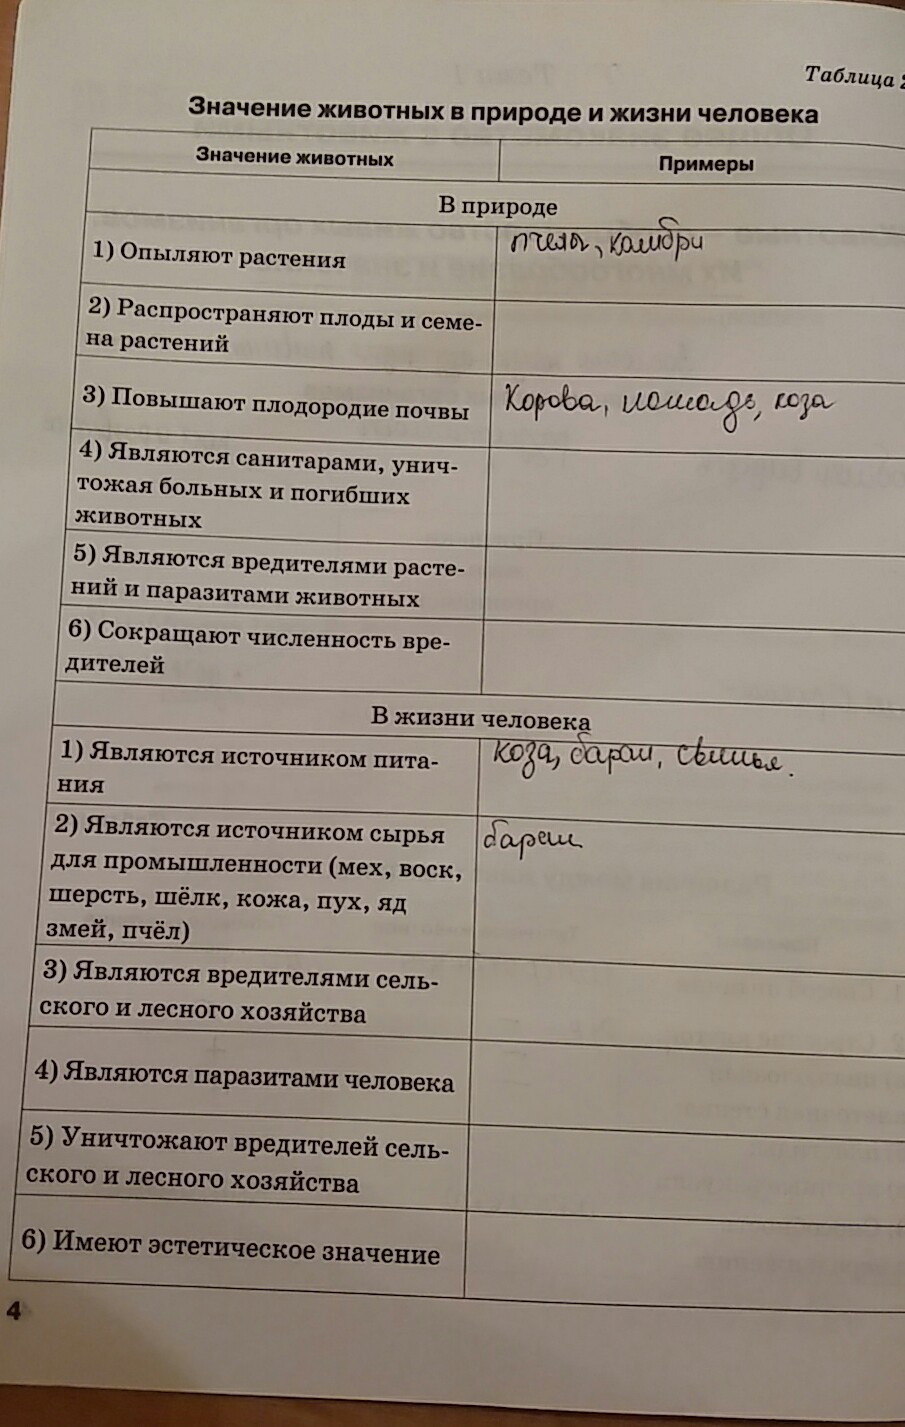 Таблица 2
Значение животных в природе и жизни человека
Значение животных
Примеры
В природе
1) Опыляют растения
пчелы, калибри
2) Распространяют плоды и семе-
на растений
3) Повышают плодородие почвы
Корова, лошадь, коза
4) Являются санитарами, унич-
тожая больных и погибших
животных
5) Являются вредителями расте-
ний и паразитами животных
6) Сокращают численность вре-
дителей
В жизни человека
1) Являются источником пита-
ния
коза, баран, свинья.
2) Являются источником сырья
для промышленности (мех, воск,
шерсть, шёлк, кожа, пух, яд
змей, пчёл)
баран
3) Являются вредителями сель-
ского и лесного хозяйства
4) Являются паразитами человека
5) Уничтожают вредителей сель-
ского и лесного хозяйства
6) Имеют эстетическое значение
4